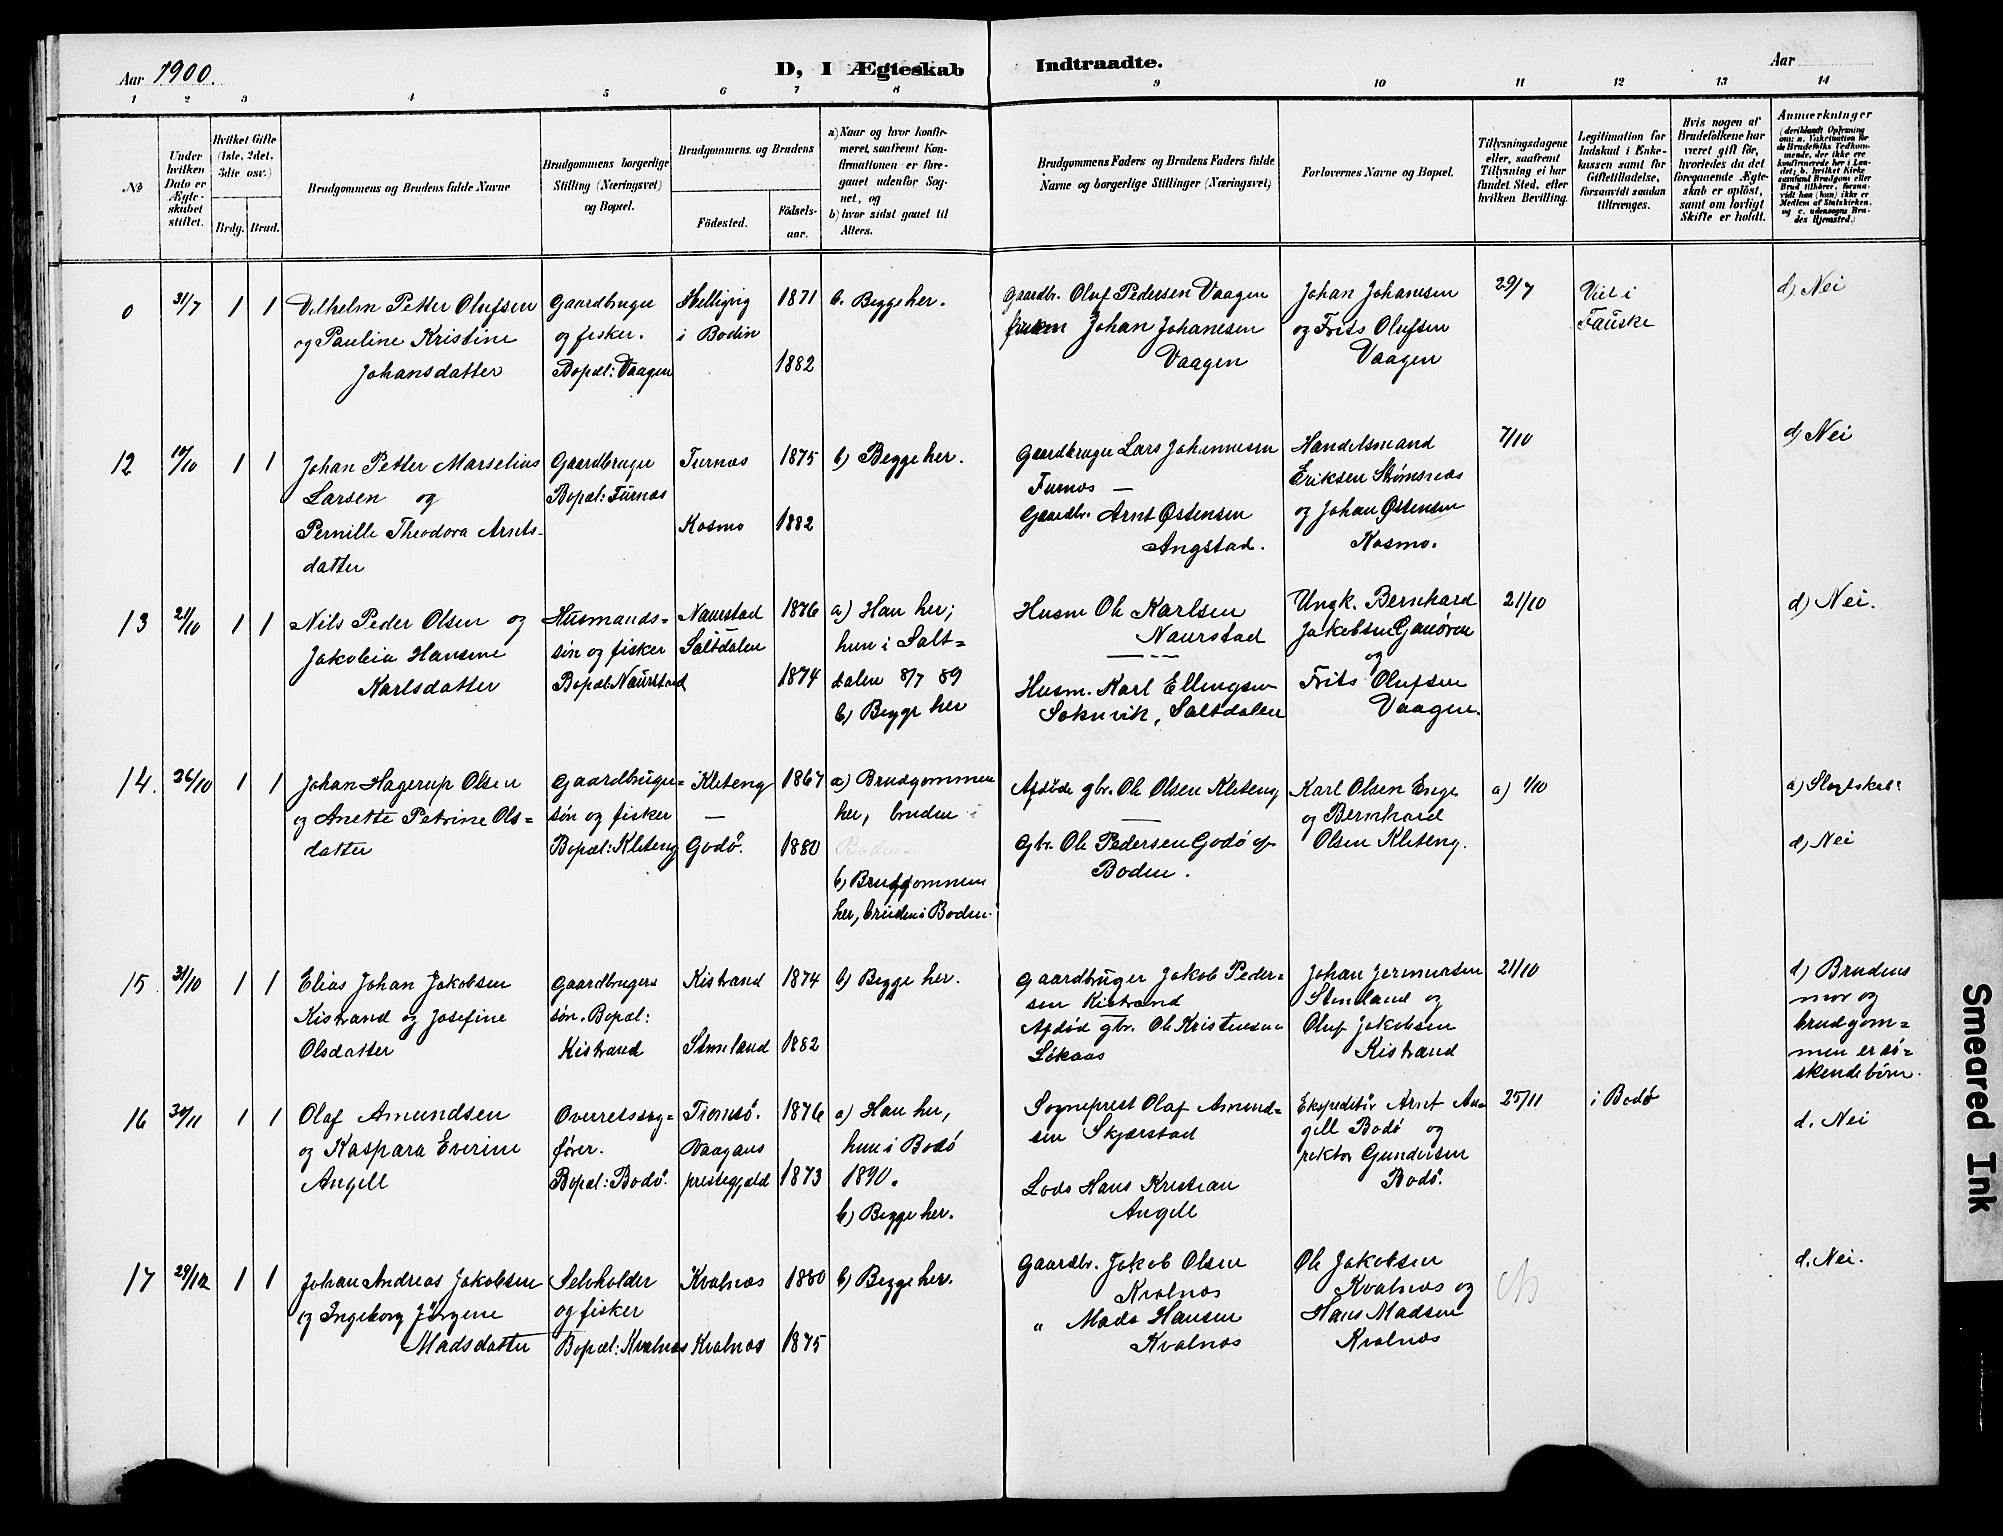 Aar 1900.
D, I Ægteskab Indtraadte.
Aar
1 2 3 4 5 6 7 8 9 10 11 12 13 14
No
Under hvilken Dato er Ægteskabet stiftet.
Hvilket Gifte (1ste, 2det, 3die osv.)
Brdg. Brud.
Brudgommens og Brudens fulde Navne
Brudgommens borgerlige Stilling (Næringsvei) og Bopæl.
Brudgommens og Brudens
Födested.
Födselsaar.
a) Naar og hvor konfirmeret, saafremt Konfirmationen er foregaaet udenfor Sognet, og
b) hvor sidst gaaet til Alters.
Brudgommens Faders og Brudens Faders fulde Navne og borgerlige Stillinger (Næringsvei)
Forlovernes Navne og Bopæl.
Tillysningsdagene eller, saafremt Tillysning ei har fundet Sted, efter hvilken Bevilling.
Legitimation for Indskud i Enkekassen samt for Giftetilladelse, forsaavidt saadan tiltrænges.
Hvis nogen af Brudefolkene har været gift før, hvorledes da det foregaaende Ægteskab er opløst, samt om lovligt Skifte er holdt.
Anmærkninger
0 31/7 1 1
Vilhelm Petter Olufsen
og Pauline Kristine
Johansdatter
Gaardbruger
og fisker.
Bopæl: Vaagen
i Bodin
1871
1882
b. Begge her.
Gaardbr. Oluf Pedersen Vaagen
Johan Johanesen
Vaagen
Johan Johanesen
og Frits Olufsen
Vaagen
29/7
Viet i
Fauske
d) Nei
12 1 1
Johan Petter Marselius
Larsen og
Pernille Theodora Arnts-
datter
Gaardbruger
Bopæl: Furnæs
Furnæs
Kosmo
1875
1882
b) Begge her.
Gaardbruger Lars Johannesen
Furnæs —
Gaardbr. Arnt Østensen
Angstad.
Handelsmand
Eriksen Strømsnæs
og Johan Østensen
Kosmo.
7/10
d) Nei
13 21/10 1 1
Nils Peder Olsen og
Jakobia Hansine
Karlsdatter
Husmands-
søn og fisker
Bopæl: Naurstad
Naurstad
Saltdalen
1876
1874
a) Han her;
hun i Salt=
dalen 8/7 89
b) Begge her
Husm Ole Karlsen
Naurstad
Husm. Karl Ellingsen
Saksvik, Saltdalen
Ungk. Bernhard
Jakobsen
og
Frits Olufsen
Vaagen.
21/10
d) Nei.
14. 26/10 1 1
Johan Hagerup Olsen
og Anette Petrine Ols=
datter
Gaardbruger-
søn og fisker
Bopæl: Kleteng
Kleteng
—
Godø.
1867
1880
a) Brudgommen
her, bruden i
b) Brudgommen
her, bruden i Bodin.
Afdøde gbr. Ole Olsen Kleteng
—
Gbr. Ole Pedersen Godø af
Boden.
Karl Olsen Enge
og Bernhard
Olsen Kleteng.
a)
a) Slegtskab:
d) Nei
15. 31/10 1 1
Elias Johan Jakobsen
Kistrand og Josefine
Olsdatter
Gaardbrugers
søn. Bopæl:
Kistrand
Kistrand
Steneland
1874
1882
b) Begge her.
Gaardbruger Jakob Peder=
sen Kistrand
Afdød gbr. Ole Kristensen
Løkaas
Johan Jermundsen
Stenland og
Oluf Jakobsen
Kistrand
21/10
d) Brudens
mor og
brudgom=
men er sø=
skendebørn.
16 30/11 1 1
Olaf Amundsen
og Kaspara Everine
Angell
Overretssag-
fører.
Bopæl: Bodø.
Tromsø.
Vaagans
prestegjæld
1876
1873
a) Han her,
hun i Bodø
1890.
b) Begge her.
Sogneprest Olaf Amund=
sen Skjærstad
Lods Hans Kristian
Angell
Ekspeditør Arnt An-
gell Bodø og
rektor Gundersen
Bodø.
25/11
i Bodø
d. Nei
17 29/12 1 1
Johan Andreas Jakobsen
og Ingeborg Jørgine
Madsdatter
Selvholder
og fisker
Bopæl: Kvalnæs
Kvalnæs
Kvalnæs
1880
1875
b) Begge her.
Gaardbr. Jakob Olsen
Kvalnæs
" Mads Hansen
Kvalnæs
Ole Jakobsen
Kvalnæs og
Hans Madsen
Kvalnæs
d. Nei.
Smeared Ink